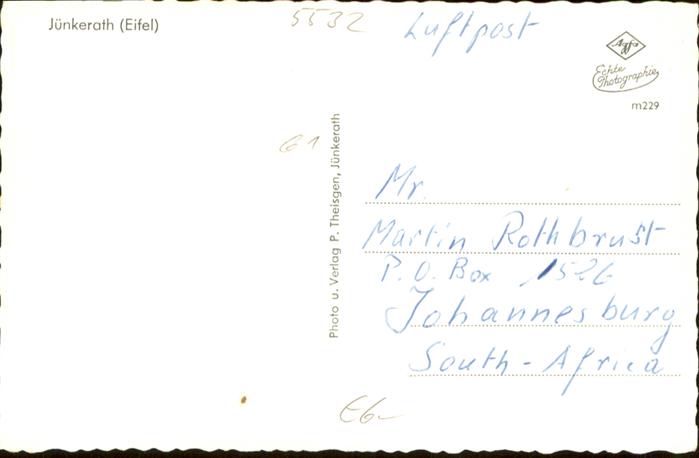 Jünkerath (Eifel)
5532
Luftpost
Agfa
Echte
Photographie
m229
61
Photo u. Verlag P. Theisgen, Jünkerath
Mr.
Martin Rothbrust
P.O. Box 1526
Johannesburg
South-Africa